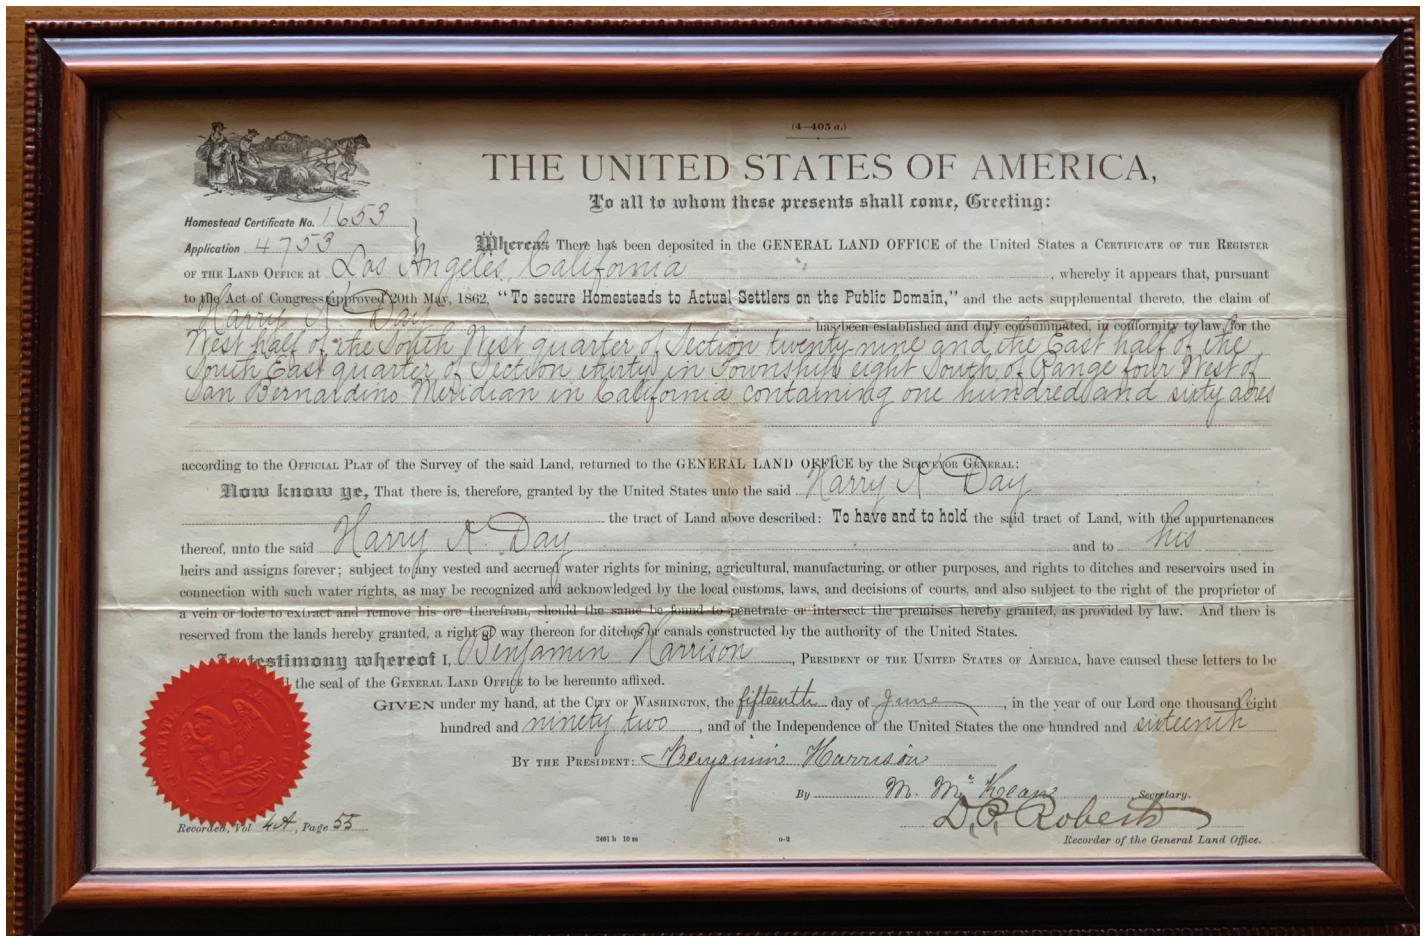 (4—403 a.)
THE UNITED STATES OF AMERICA,
To all to whom these presents shall come, Greeting:
Homestead Certificate No. 1653
Application 4753
Whereas There has been deposited in the GENERAL LAND OFFICE of the United States a CERTIFICATE OF THE REGISTER
OF THE LAND OFFICE at Los Angeles, California, whereby it appears that, pursuant
to the Act of Congress approved 20th May, 1862, "To secure Homesteads to Actual Settlers on the Public Domain," and the acts supplemental thereto, the claim of
Harry A. Day has been established and duly consummated, in conformity to law, for the
West half of the South West quarter of Section twenty nine and the East half of the
South East quarter of Section thirty in Township eight South of Range four West of
San Bernardino Meridian in California containing one hundred and sixty acres
according to the OFFICIAL PLAT of the Survey of the said Land, returned to the GENERAL LAND OFFICE by the SURVEYOR GENERAL:
Now know ye, That there is, therefore, granted by the United States unto the said Harry A Day
the tract of Land above described: To have and to hold the said tract of Land, with the appurtenances
thereof, unto the said Harry A. Day and to his
heirs and assigns forever; subject to any vested and accrued water rights for mining, agricultural, manufacturing, or other purposes, and rights to ditches and reservoirs used in
connection with such water rights, as may be recognized and acknowledged by the local customs, laws, and decisions of courts, and also subject to the right of the proprietor of
a vein or lode to extract and remove his ore therefrom, should the same be found to penetrate or intersect the premises hereby granted, as provided by law. And there is
reserved from the lands hereby granted, a right of way thereon for ditches or canals constructed by the authority of the United States.
In testimony whereof I, Benjamin Harrison, PRESIDENT OF THE UNITED STATES OF AMERICA, have caused these letters to be
the seal of the GENERAL LAND OFFICE to be hereunto affixed.
GIVEN under my hand, at the CITY OF WASHINGTON, the fifteenth day of June, in the year of our Lord one thousand eight
hundred and ninety two, and of the Independence of the United States the one hundred and sixteenth
BY THE PRESIDENT: Benjamin Harrison
By M. McKean Secretary.
D. P. Roberts
Recorded, Vol 4A, Page 55
2461 b 10 m o-2
Recorder of the General Land Office.